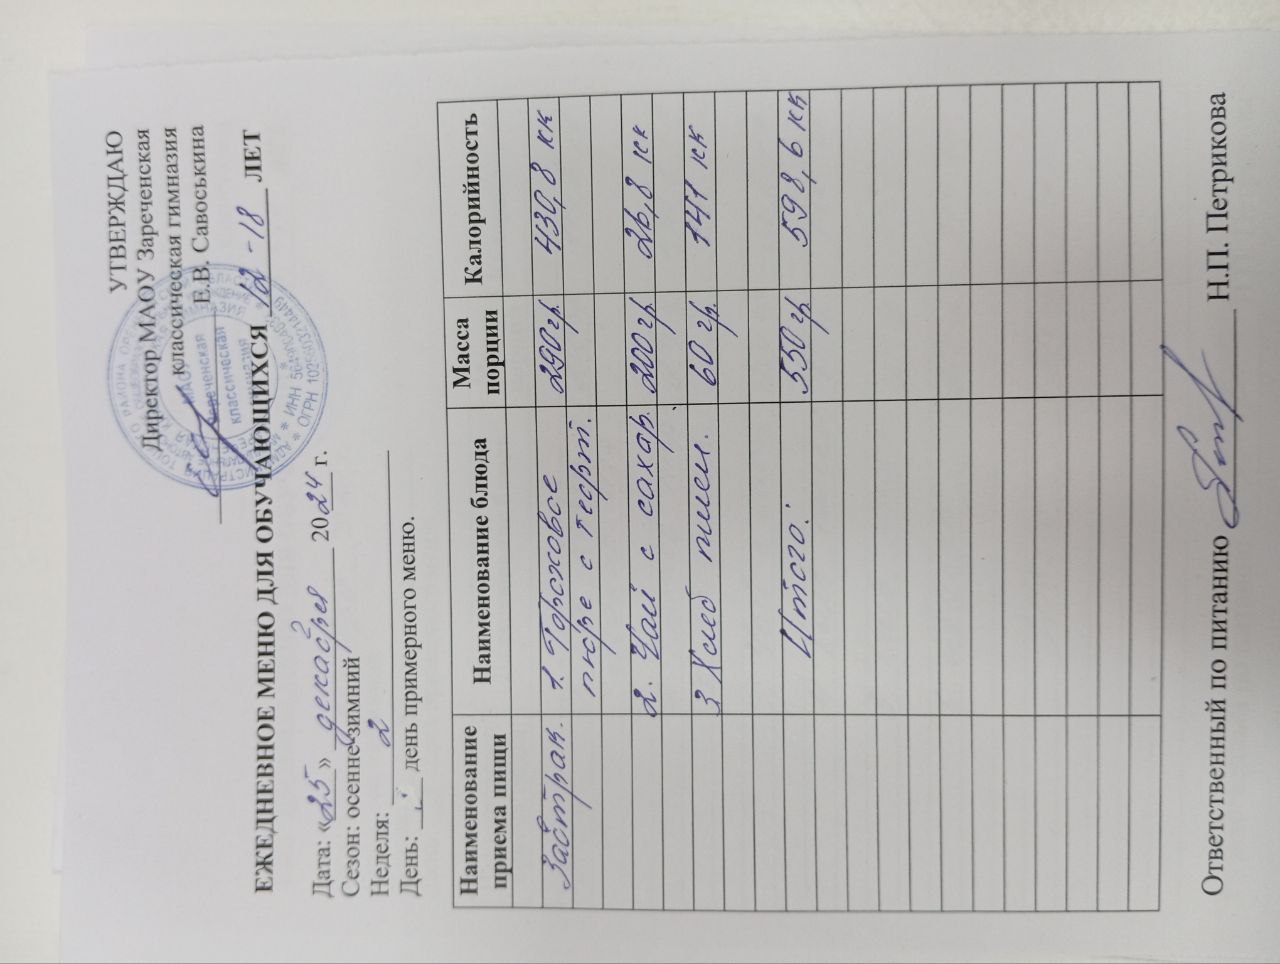 УТВЕРЖДАЮ
Директор МАОУ Зареченская
классическая гимназия
Е.В. Савоськина
ЕЖЕДНЕВНОЕ МЕНЮ ДЛЯ ОБУЧАЮЩИХСЯ 12-18 ЛЕТ
Дата: «25» декабря 2024 г.
Сезон: осенне-зимний
Неделя: 2
День: день примерного меню.
Наименование приема пищи Наименование блюда Масса порции Калорийность
Завтрак. 1. Гороховое 290гр. 430,8 кк
пюре с
2. Чай с сахар. 200гр. 26,8 кк
3 Хлеб пшен. 60 гр. 141 кк
Итого: 550гр 598,6 кк
Ответственный по питанию Н.П. Петрикова